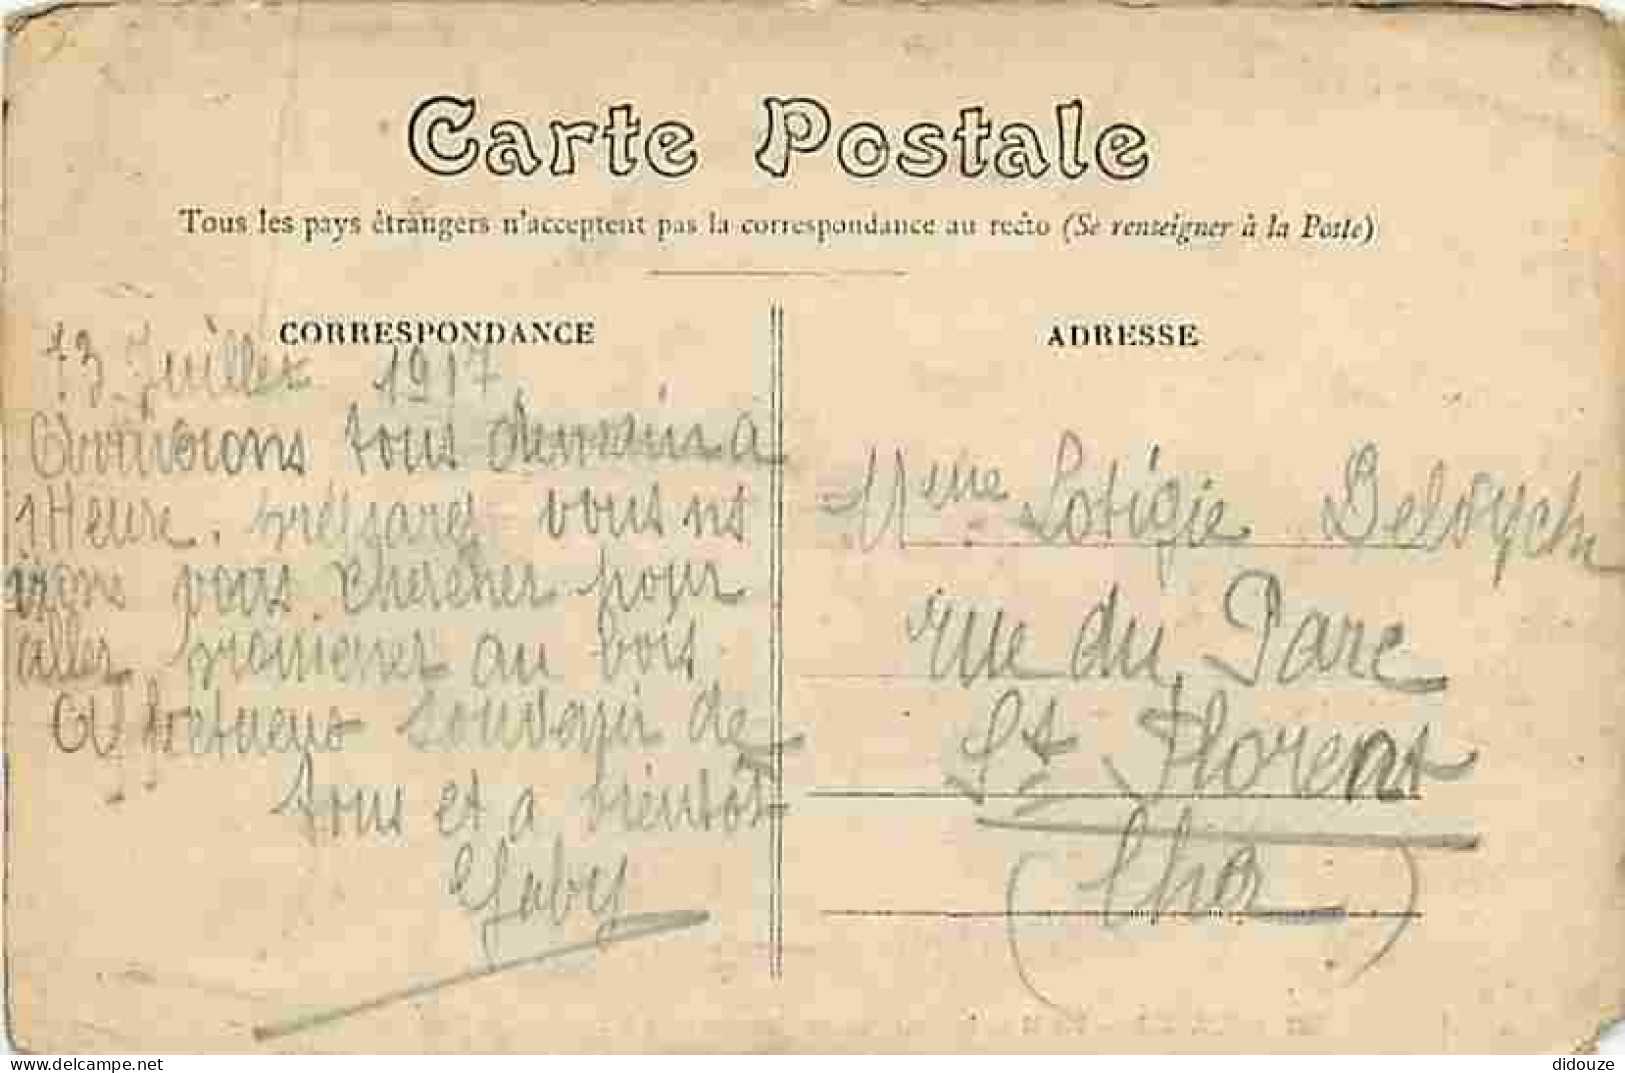 Carte Postale
Tous les pays étrangers n'acceptent pas la correspondance au recto (Se renseigner à la Poste)
CORRESPONDANCE
ADRESSE
13 Juillet 1917
Arriverons tous demain a
1 Heure. préparez vous ns
irons vous chercher pour
aller promener au bois
Affectueux souvenir de
tous et a bientot
Gaby
Mme
rue du Parc
St Florent
(Cher)
didouze